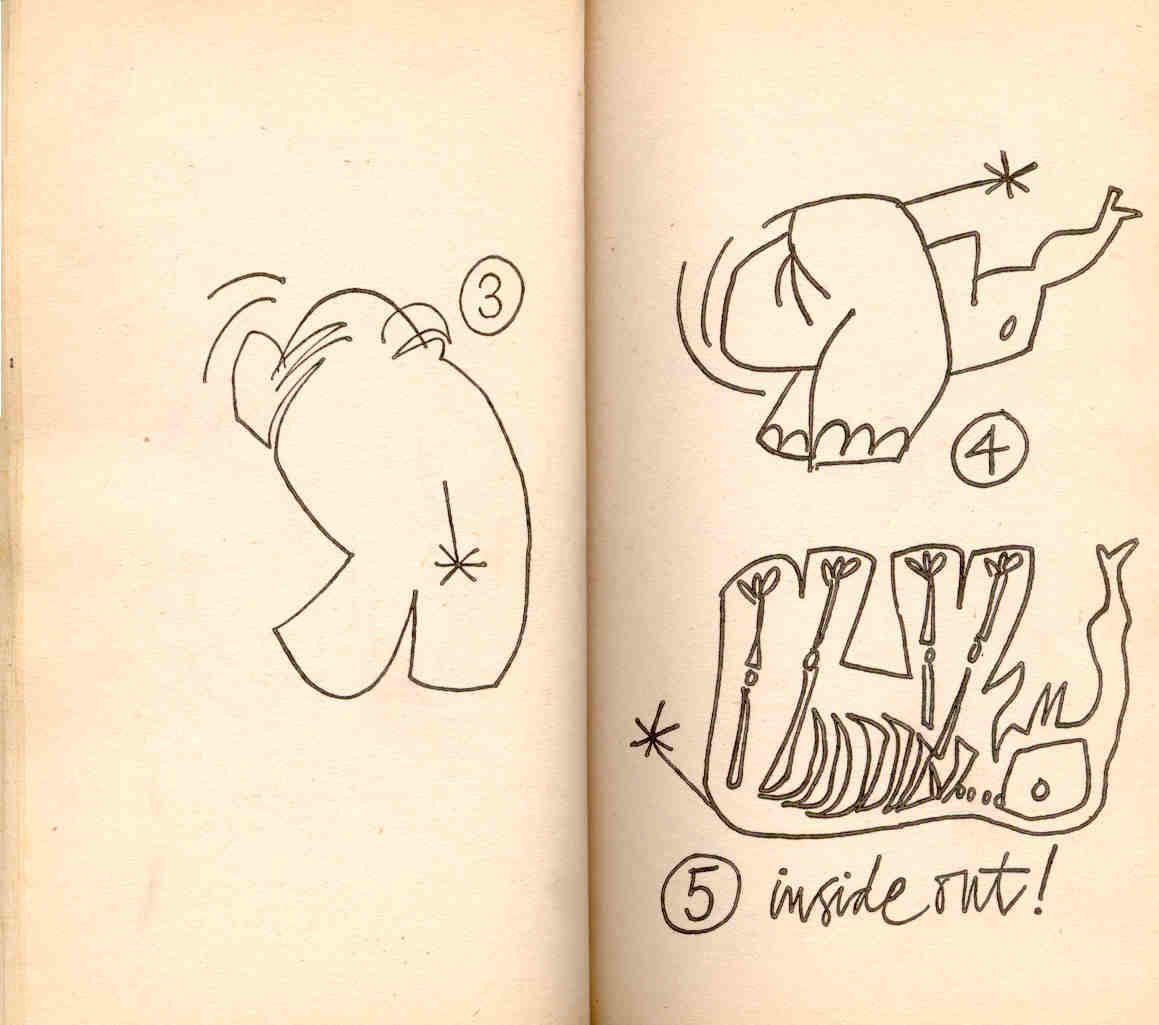 3
4
5 inside out!